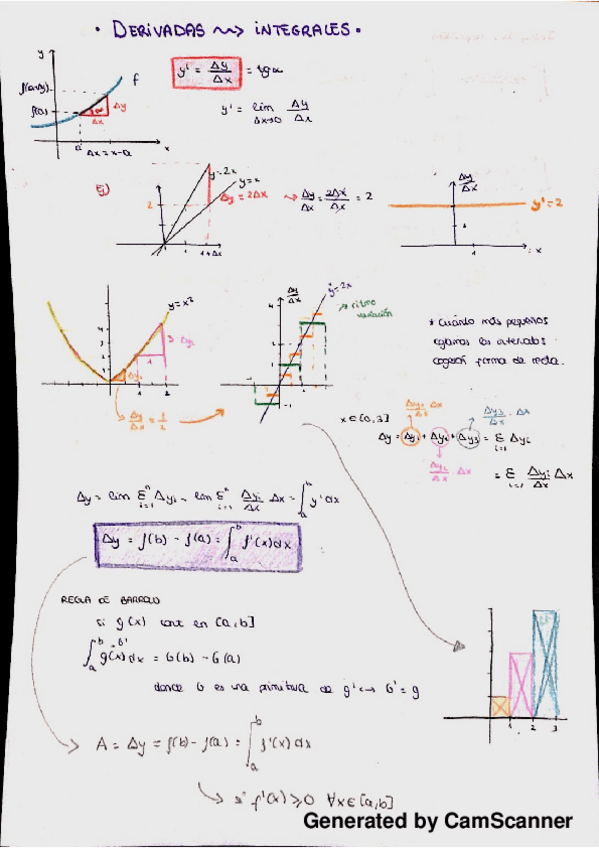 · DERIVADAS ⇝ INTEGRALES ·
y
f
Δy
α
Δx
a
Δx = x-a
x
y' = Δy/Δx = tg α
y' = lim Δx→0 Δy/Δx
Ej
y=2x
y=x
2
Δy = 2Δx
1
1+Δx
⇝ Δy/Δx = 2Δx/Δx = 2
Δy/Δx
y' = 2
1
x
y=x²
1
2
→ Δy/Δx = 1/2
Δy/Δx
y=2x
ritmo
variación
* Cuánto más pequeños
cojamos los intervalos
cogerá forma de recta.
x∈[0,3]
Δy₁/Δx · Δx
Δy₃/Δx · Δx
Δy = Δy₁ + Δy₂ + Δy₃ = Σ i=1 Δyi
Δy₂/Δx · Δx
= Σ i=1 Δyi/Δx Δx
Δy = lim Σⁿ i=1 Δyi = lim Σⁿ i=1 Δyi/Δx Δx = ∫ₐᵇ y' dx
Δy = f(b) - f(a) = ∫ₐᵇ f'(x)dx
REGLA DE BARROW
si g(x) cont en [a,b]
∫ₐᵇ g(x) dx = G(b) - G(a)
= G'
donde G es una primitiva de g ↔ G' = g
A = Δy = f(b) - f(a) = ∫ₐᵇ f'(x) dx
↪ si f'(x) ≥ 0 ∀x∈[a,b]
1 2 3
Generated by CamScanner